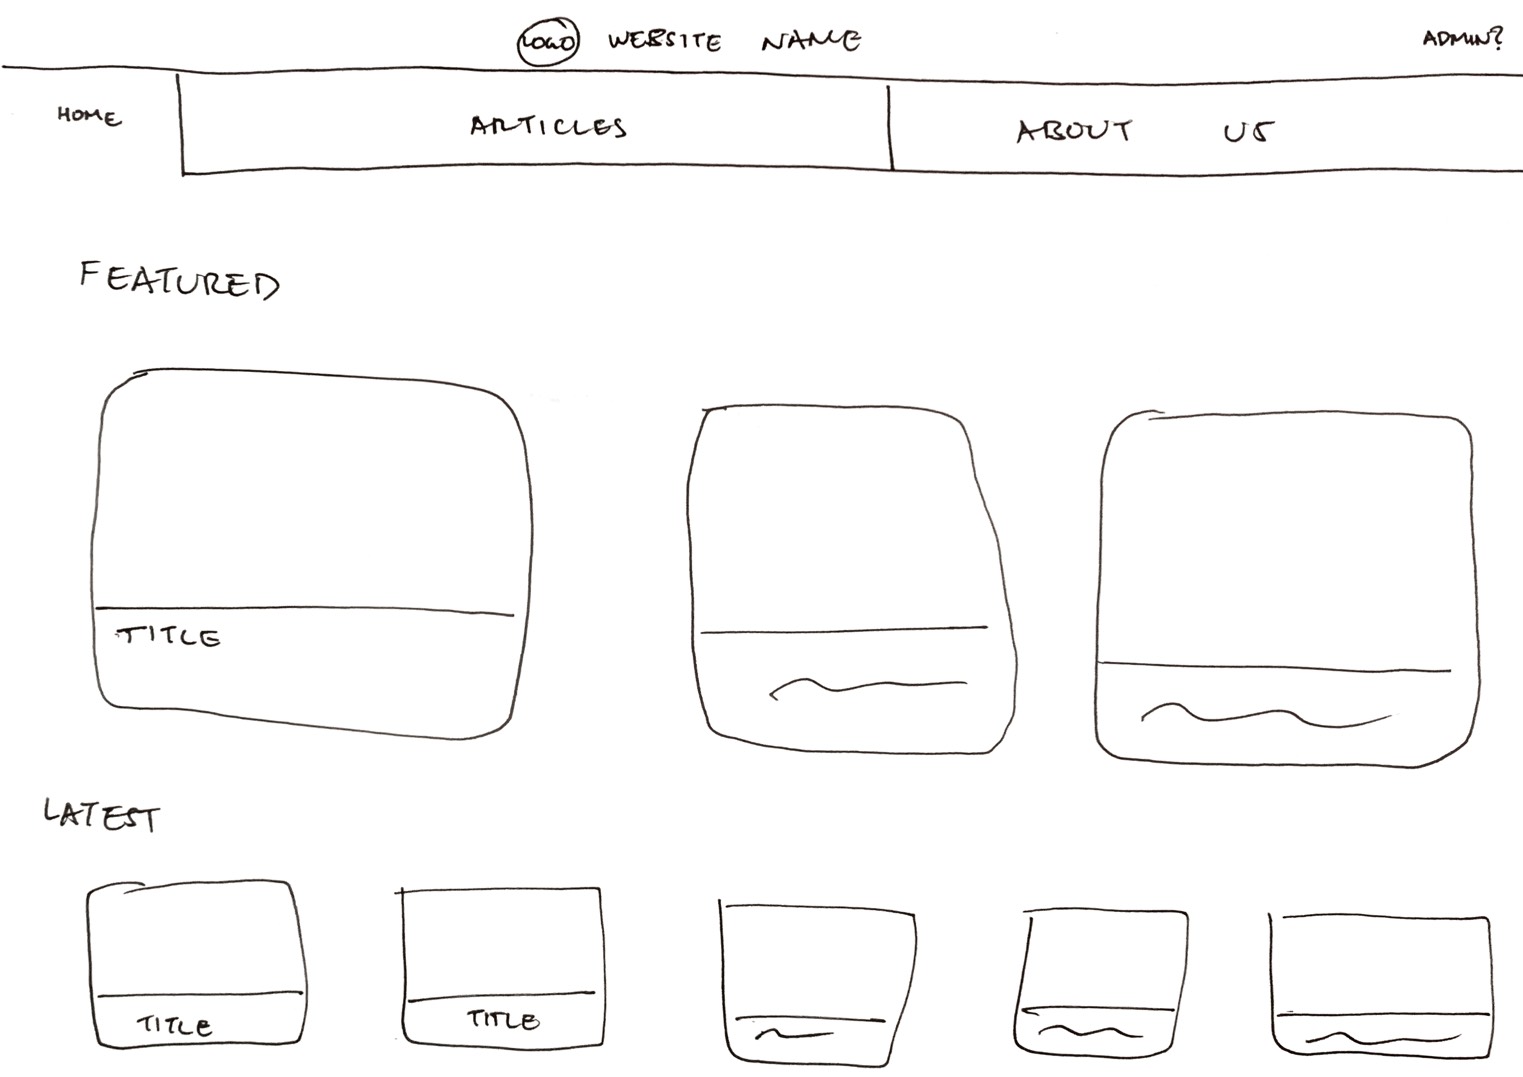 LOGO WEBSITE NAME ADMIN?
HOME ARTICLES ABOUT US
FEATURED
TITLE
LATEST
TITLE TITLE